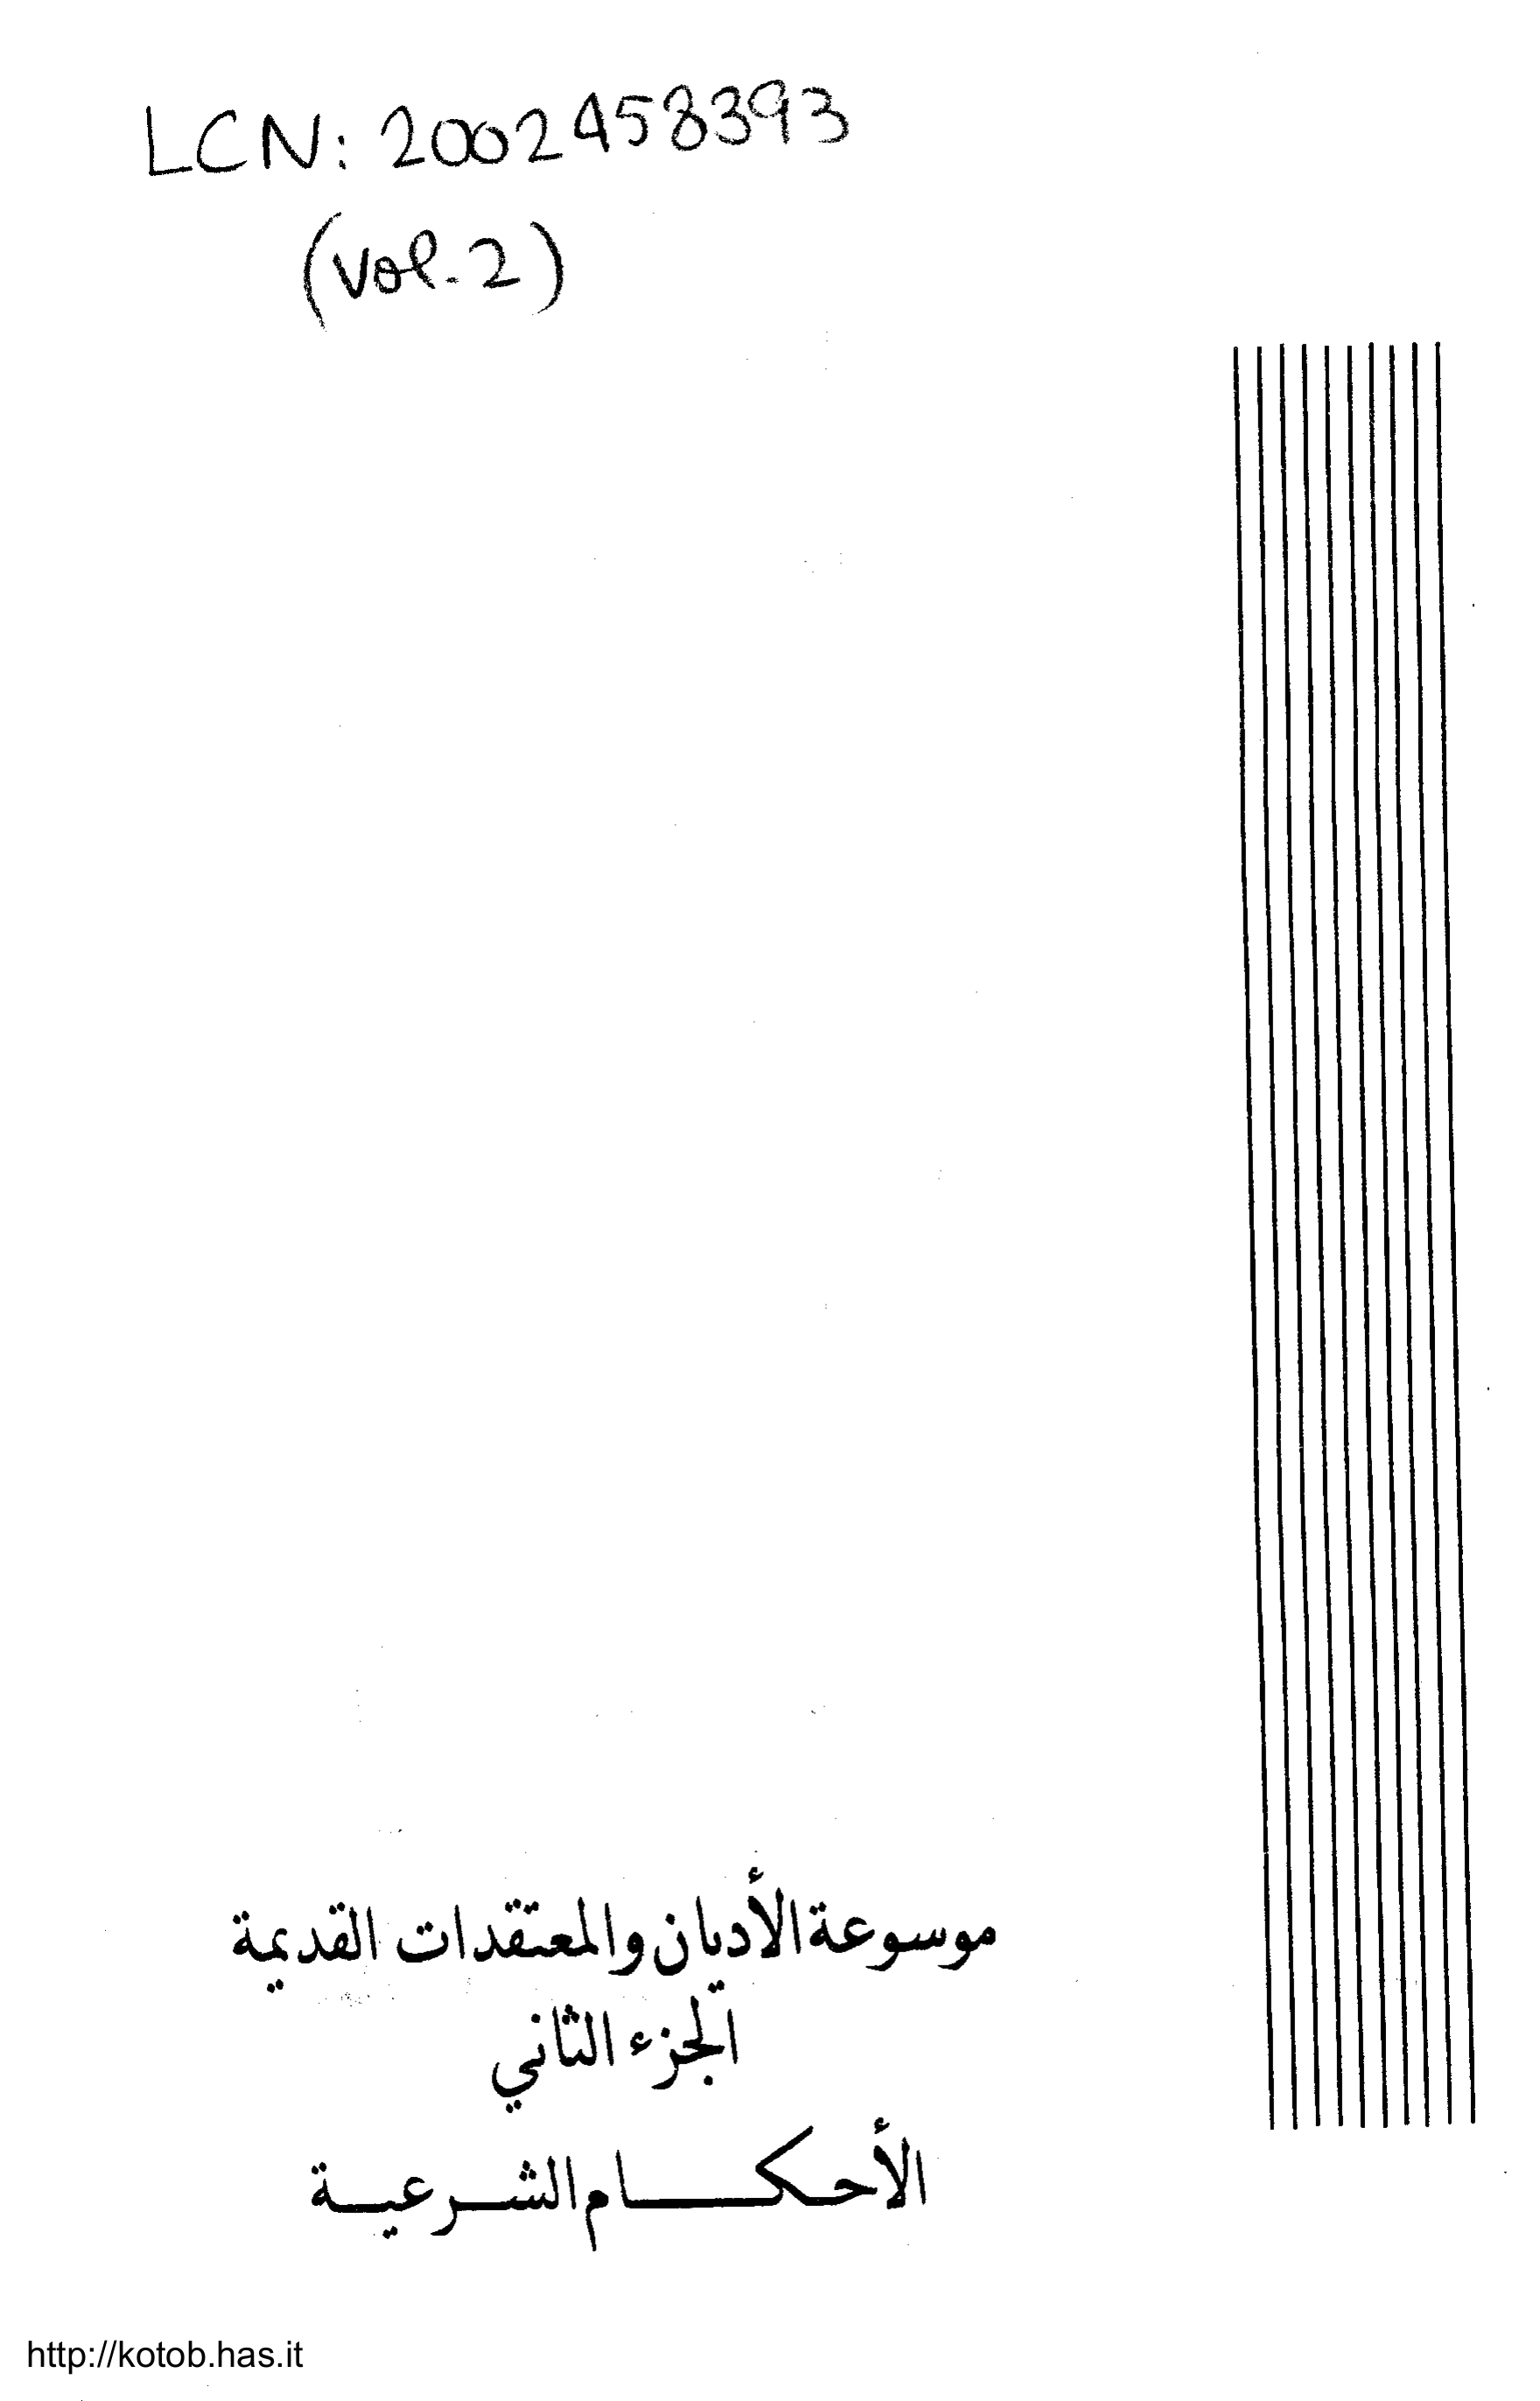 LCN: 2002458393
(vol. 2)
موسوعة الأديان والمعتقدات القديمة
الجزء الثاني
الأحكام الشرعية
http://kotob.has.it